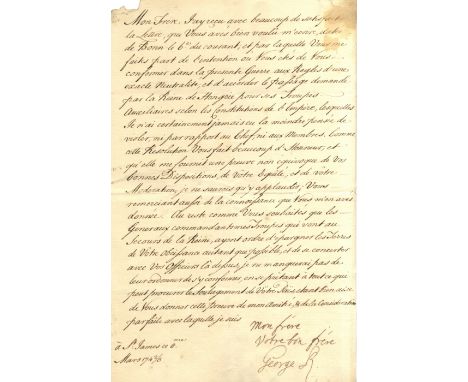 Mon Frere. J'ay reçu avec beaucoup de satisfact.
la Lettre, que Vous aves bien voulu m'ecrire, datée
de Bonn le 6e du courant, et par laquelle Vous me
faites part de l'intention ou Vous etes de Vous
conformer dans la presente Guerre aux Regles d'une
exacte Neutralité, et d'accorder le passage demandé
par la Reine de Hongrie pour ses Troupes
Auxiliaires selon les Constitutions de l'Empire, lesquelles
Je n'ai certainement jamais eu la moindre pensée de
violer, ni par rapport au Chef ni aux Membres. Comme
cette Resolution Vous fait beaucoup d'Honneur, et
qu'elle me fournit une preuve non equivoque de Vos
bonnes Dispositions, de Votre Equité, et de votre
Moderation, je ne saurois qu'y applaudir; Vous
remerciant aussi de la connoissance que Vous m'en aves
donnée. Au reste comme Vous souhaités que les
Generaux commandant mes Troupes qui vont au
Secours de la Reine, ayent ordre d'epargner les Terres
de Votre Obeissance autant que possible, et de se concerter
avec Vos Officiers là dessus, je ne manquerai pas de
leur ordonner de s'y conformer, en se pretant à tout ce que
peut procurer le Soulagement de Votre Païs, etant bien aise
de Vous donner cette preuve de mon Amitié, & de la Consideration
parfaite avec laquelle je suis
Mon frère
Votre bon frère
George R
à St. James ce 6me
Mars 174 2/3